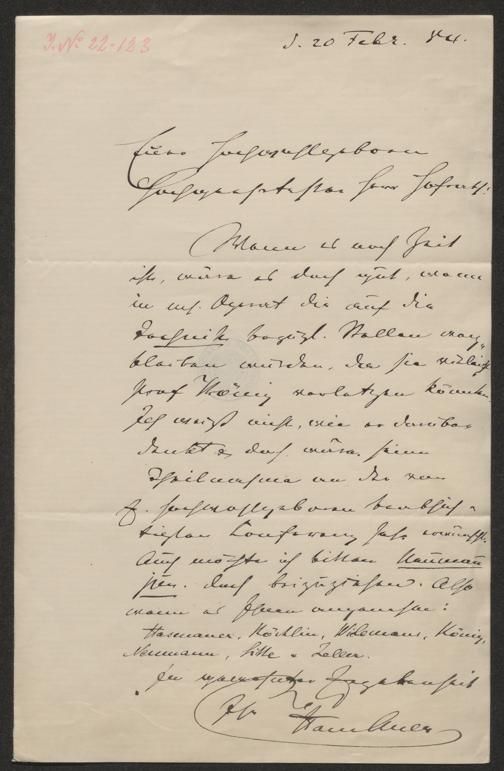 J. No 22-123
d. 20 Febr. 84.
Euer Hochwohlgeboren
Hochgeehrtester Herr Hofrath!
Wenn es noch Zeit
ist, wäre es doch gut, wenn
in m. Operat die auf die
Technik bezügl. Stellen weg-
bleiben würden, da sie vielleicht
Prof König verletzen könnten.
Ich weiß nicht, wie er darüber
denkt & doch wäre seine
Theilnahme an der von
E. Hochwohlgeboren beabsich-
tigten Conferenz sehr erwünscht.
Auch möchte ich bitten Naumann
jun. doch beizuziehen. Also
wenn es Ihnen angenehm:
Köchlin, Widemann, König,
Neumann, Sitte & Zeller.
In Ergebenheit
Ihr